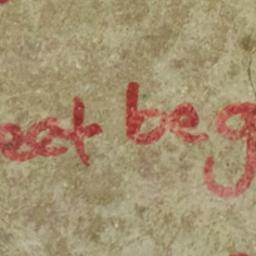 eet beg